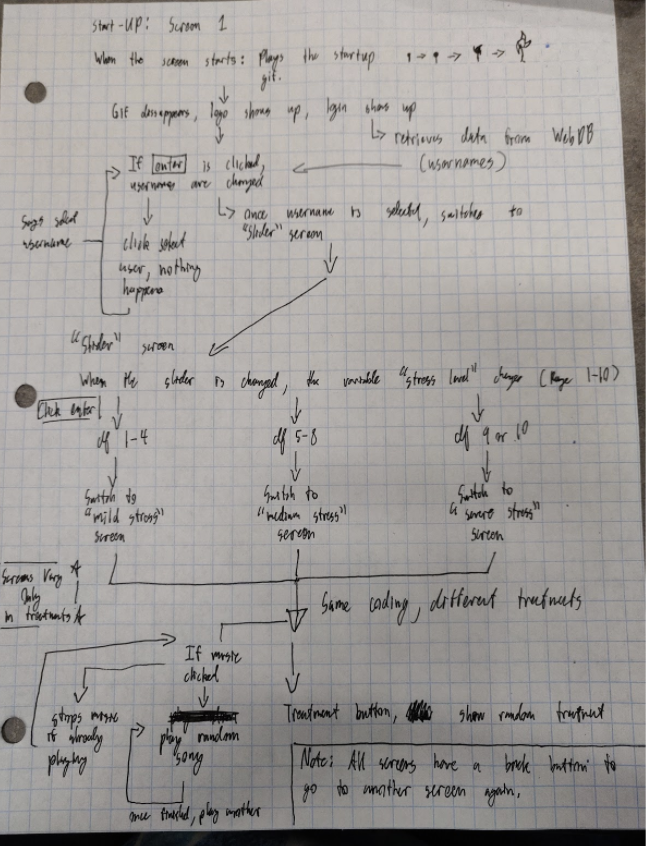 Start-UP: Screen 1
When the screen starts: Plays the startup
gif.
Gif dissappears, logo shows up, login shows up
retrieves data from WebDB
(usernames)
If enter is clicked,
usernames are changed
once username is selected, switches to
"Slider" screen
Says select
username
click select
user, nothing
happens
"Slider" screen
When the slider is changed, the variable "stress level" changes (Range 1-10)
Click enter
If 1-4
If 5-8
If 9 or 10
Switch to
"mild stress"
screen
Switch to
"medium stress"
screen
Switch to
"severe stress"
screen
Screens Vary
Only
in treatments
Same coding, different treatments
If music
clicked
Stops music
if already
playing
play random
song
once finished, play another
Treatment button, show random treatment
Note: All screens have a back button to
go to another screen again.